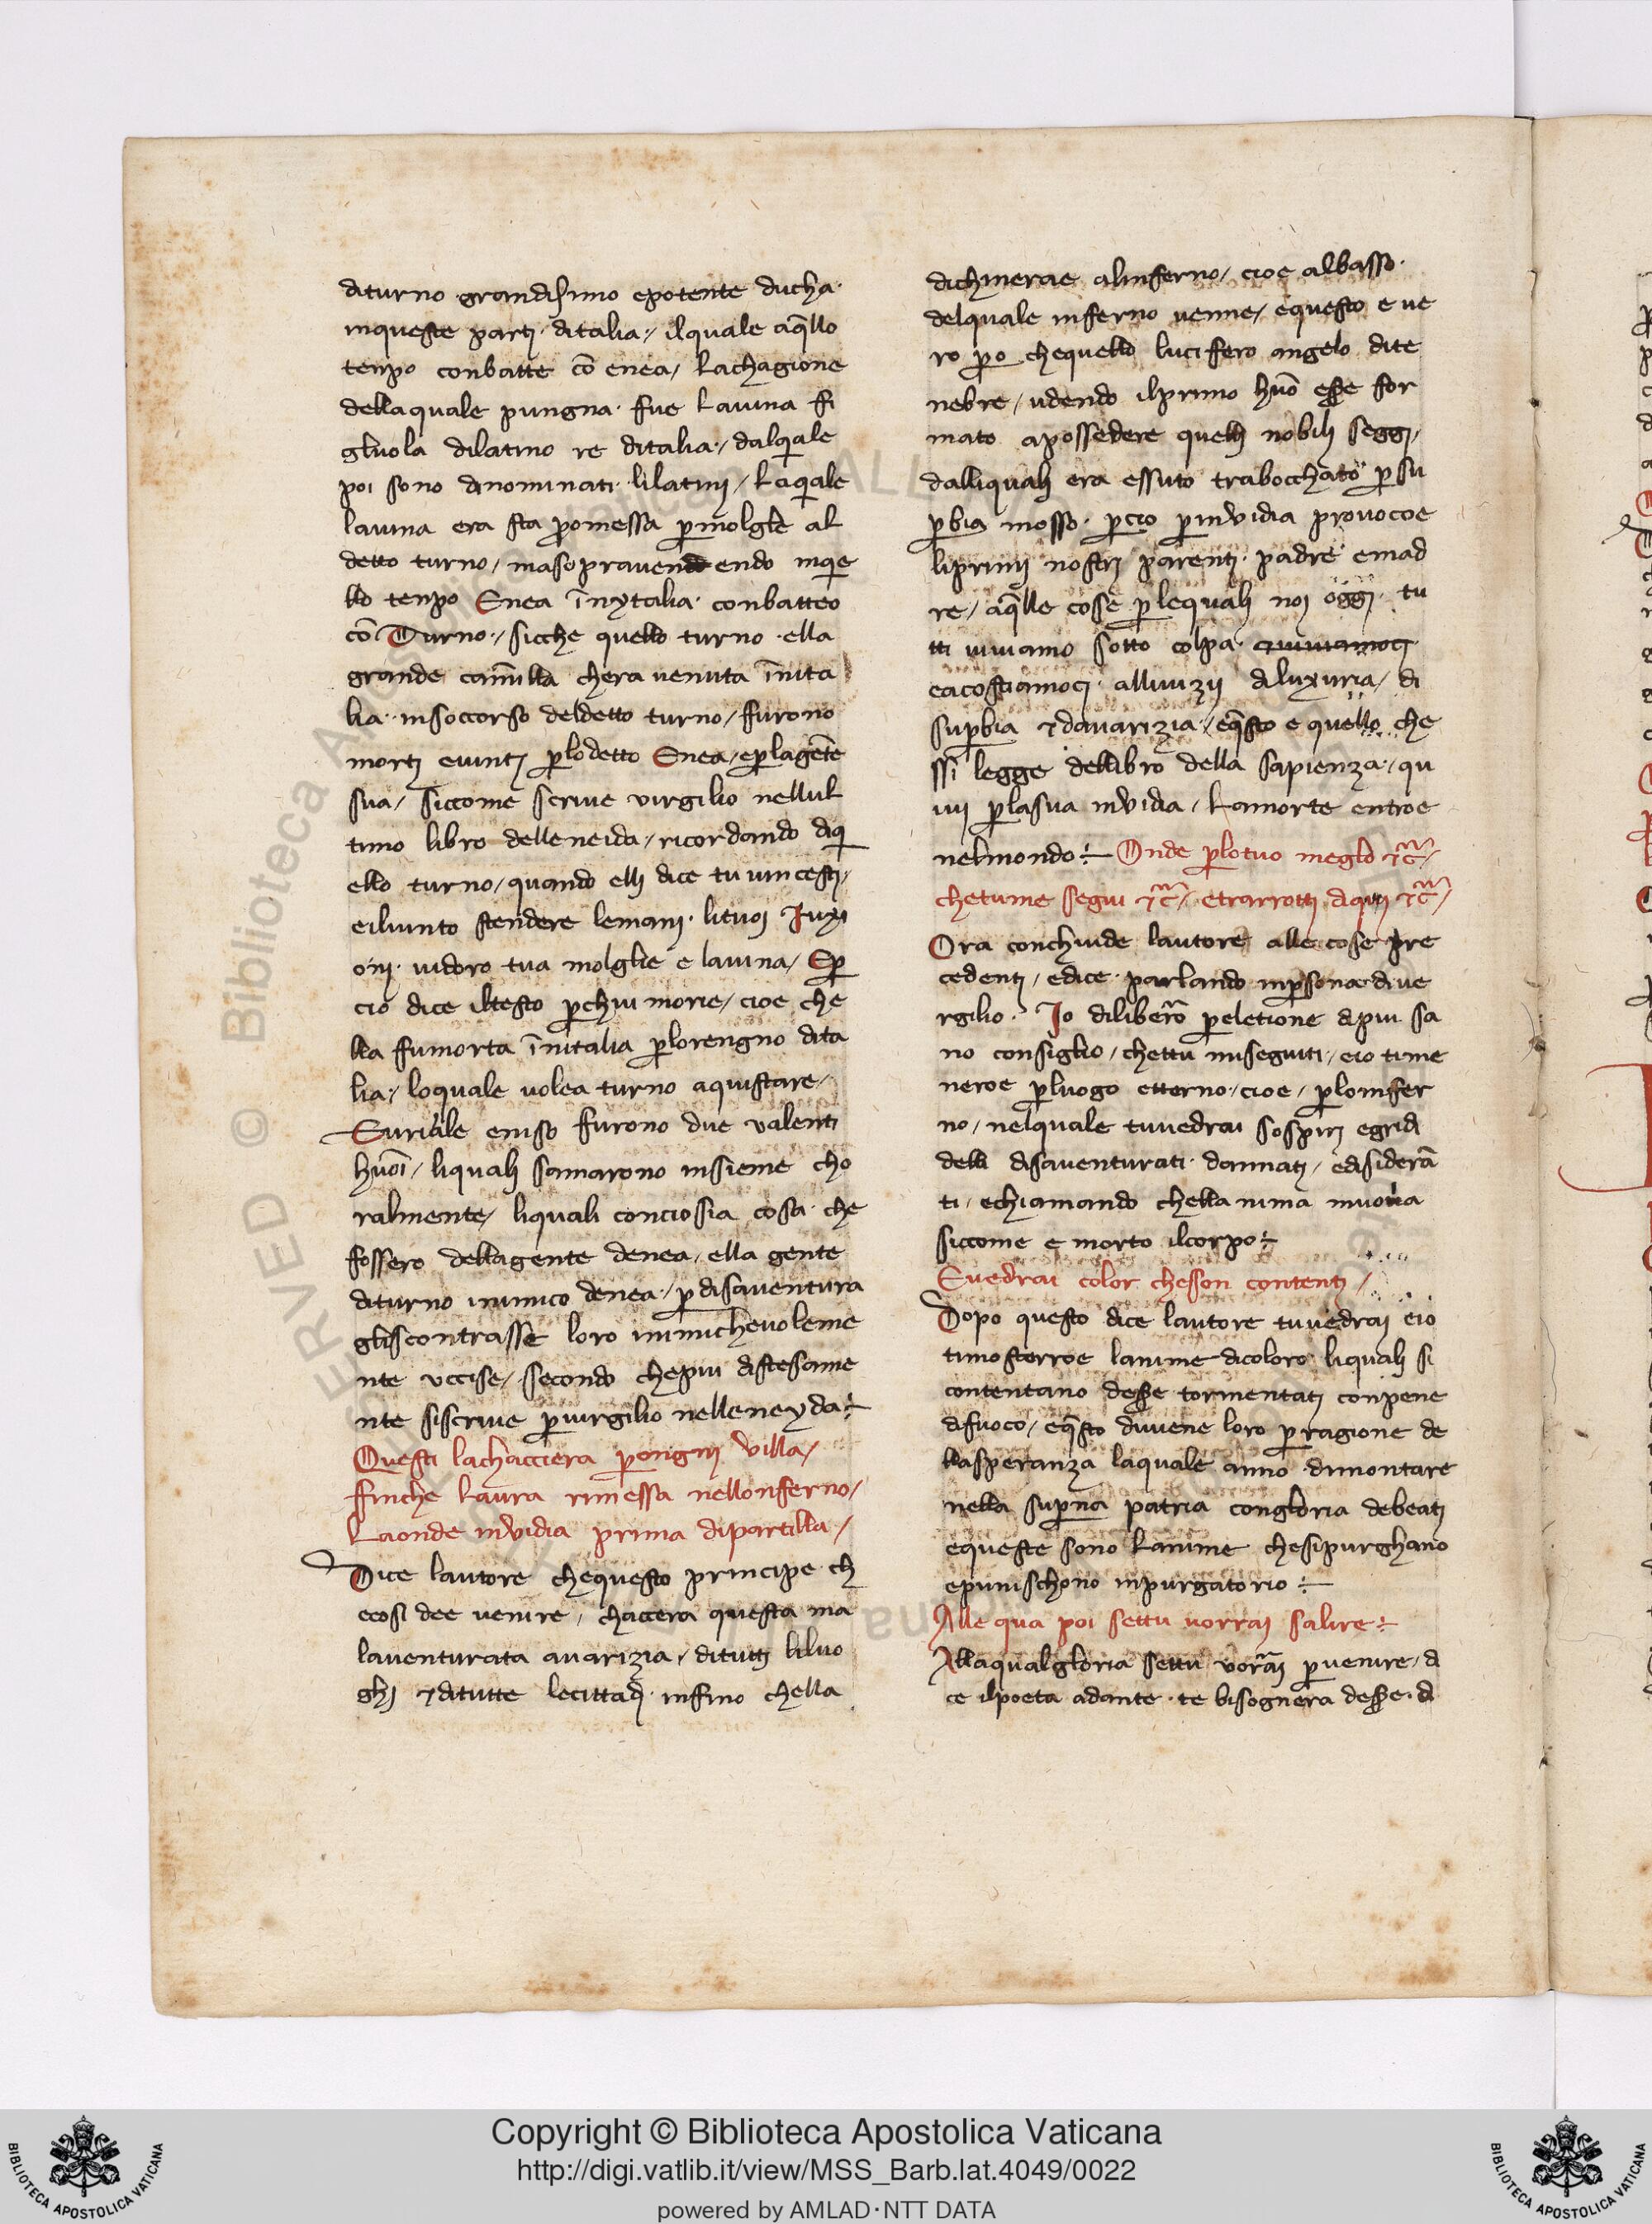 diturno grandiſimo epotente ducha·
inqueste parti· ditalia·/ ilquale aq̄llo
tenpo conbatte cō enea/ Lachagione
dellaquale pungna· fue Lauina fi
gliuola dilatino re ditalia·/ dalq̄ale
poi sono dinominati· lilatinj / Laq̄ale
lauina era sta p̄messa p̱molglie al
detto turno/ masopravenendo inque
llo tenpo Enea īnytalia· conbatteo
cō Turno·/ sicche quello turno ·ella
grande camīlla chera uenuta īnita
lia· insoccorso deldetto turno/ furono
mortj euintj p̱lodetto Enea/ep̱lagēte
sua/ siccome scriue virgilio nellul
timo libro delleneida/ ricordando diq
ello turno/quando ellj dice tu uincestj/
eiluinto stendere lemani· lituoj Iuxi
onj· uidoro tua molglie e lauina/ Ep̱
ciò dice iltesto p̱chuj morie/ cioe che
lla fumorta īnitalia p̱lorengno dita
lia·/ loquale uolea turno aquistare/
Euriale eniso furono due valenti
huoī/ liqualj samarono insieme cho
ralmente/ liquali conciosia cosa· che
fossero dellagente denea/ ella gente
diturno inimico denea·/ p̱disauentura
gliscontrasse loro inimicheuoleme
nte uccise/ secondo chepiu distesame
nte siscriue p̱uirgilio nelleneyda÷
Questi lachacciera p̱ongnj villa/
ffinche Laura rimessa nellonferno/
Laonde invidia prima dipartilla/
Dice lautore chequesto principe ch
ecosi dee uenire/ chaccera questa ma
lauenturata auarizia/ ditutti liluo
ghj ⁊ditutte lecittadj· infino chella
dichinerae alinferno/ cioe albasso·
delquale inferno uenne/ equesto e ue
ro p̱o chequello lucifero angelo dite
nebre/ udendo ilprimo huō esse for
mato apossedere quellj nobilj seggj/
dalliqualj era essuto trabocchato p̱su
p̱bia mosso· p̱cio p̱invidia prouocoe
liprimj nostrj parentj· padre emad
re/ aq̄lle cosse p̱lequalj noj oggj· tu
tti uiuiamo sotto colpa· quiuiamocj
eacostiamocj· alliuizij diluxuria/ di
sup̱bia ⁊dauarizia·/ eq̄sto e quello che
ssi legge dellibro della sapienza·/ qu
iui p̱lasua invidia/ Lamorte entroe
nelmondo÷ Onde p̱lotuo meglo ⁊c̃/
chetume segui ⁊c̃/ etrarrottj diqui ⁊c̃/
Ora conchiude lautore alle cose pre
cedentj/ edice· parlando inp̱sona diue
rgilio· Io dilibero p̱eletione dipiu sa
no consiglio/ chettu miseguiti/ eio time
neroe p̱luogo etterno/cioe/ p̱lonfer
no/ nelquale tuuedrai sospirj egridi
delli disauenturati· dannatj/ edisiderā
ti· echiamando chella nima muoua
siccome e morto ilcorpo÷
Euedrai color chesson contentj/
Dopo questo dice lautore tuuedraj eio
timosterroe lanime dicoloro liqualj si
contentano desse tormentatj conpene
difuoco/ eq̄sto diuiene loro p̱ragione de
llasperanza laquale anno dimontare
nella sup̱na patria congloria debeatj
equeste sono Lanime chesipurghano
epunischono inpurgatorio÷
Alle qua poi settu uorraj salire÷
Allaqualgloria settu uoraj p̱uenire/di
ce ilpoeta adante· te bisognera desse· di
Copyright © Biblioteca Apostolica Vaticana
http://digi.vatlib.it/view/MSS_Barb.lat.4049/0022
powered by AMLAD·NTT DATA